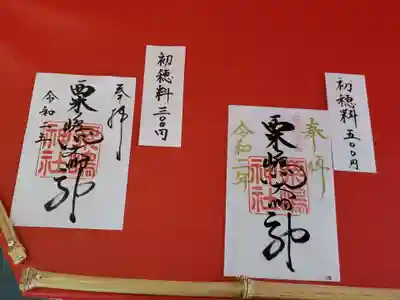 初穂料 五〇〇円
奉拝
粟嶋大神
令和二年
粟嶋
神社
初穂料 三〇〇円
奉拝
粟嶋大神
令和二年
粟嶋
神社